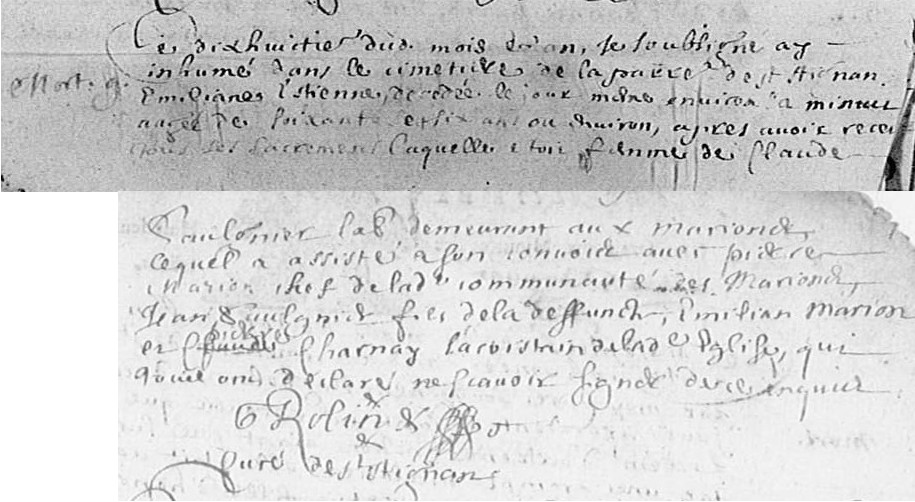 Le dixhuitie dud. mois et an, je soubsigné ay
inhumé dans le cimetiere de la paroisse de st Aignan
Mort. Emiliane Estienne, decedée le jour mesme environ a minuit
aagée de soixante et six ans ou environ, apres avoir receu
tous les sacremens laquelle etoit femme de Claude
Saulgnier lab demeurant aux Marions,
lequel a assisté a son convoir avec pierre
Marion chef de lad communauté des Marions,
Jean Saulgnier fils de la deffuncte, Emilian Marion
et pierre Charnay sacristain de lad Eglise, qui
ont declaré ne scavoir signer de ce enquis
Rolin
Curé de st Aignan